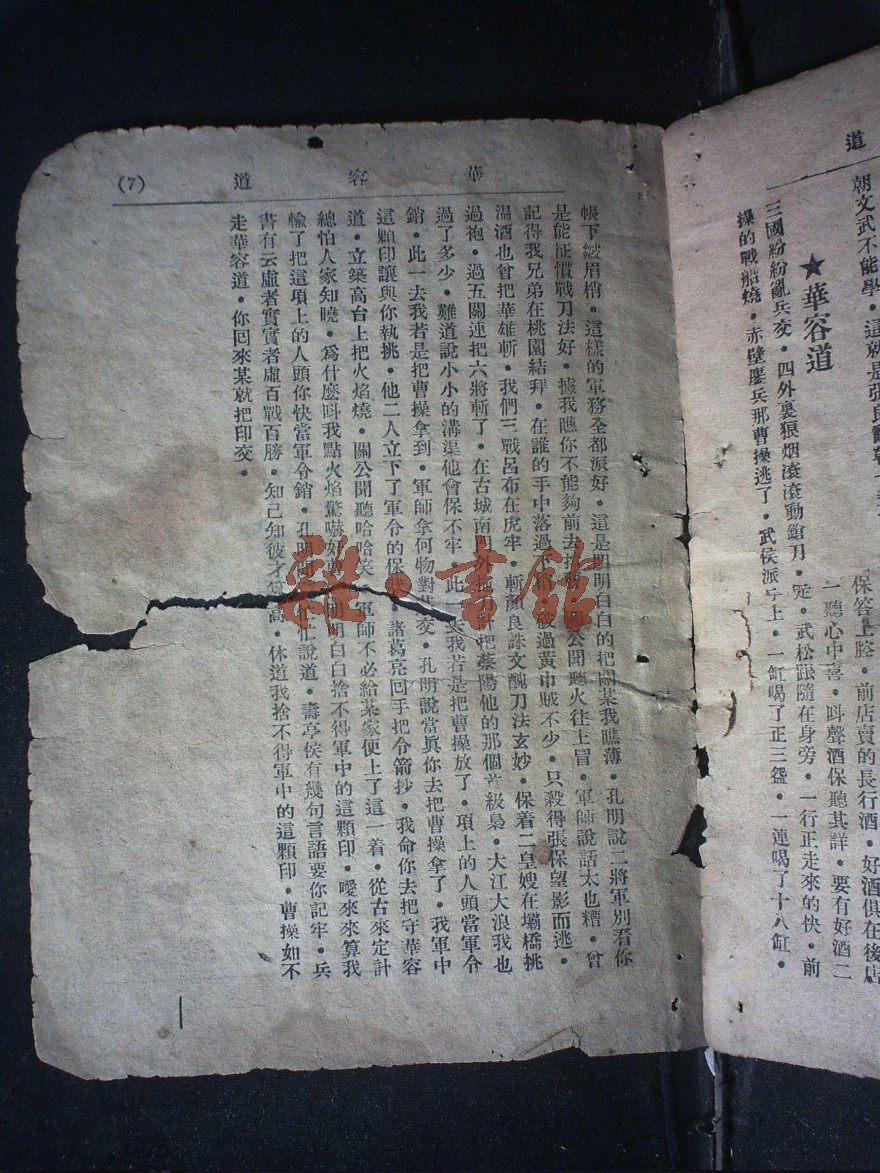 道
朝文武不能學・這就是張良
★華容道
三國紛紛亂兵交・四外裏狼烟滾滾動鎗刀・
操的戰船燒・赤壁鏖兵那曹操逃了・武侯派
保答上腔・前店賣的長行酒・好酒俱在後店
一聽心中喜・呌聲酒保聽其詳・要有好酒二
定・武松跟隨在身旁・一行正走來的快・前
上・一缸喝了正三盌・一連喝了十八缸・
華容道 (7)
帳下皺眉梢・這樣的軍務全都派好・這是明明白白的把關某我瞧薄・孔明說二將軍別看你
是能征慣戰刀法好・據我瞧你不能夠前去 公聞聽火往上冒・軍師說話太也糟・曾
記得我兄弟在桃園結拜・在誰的手中落過 破過黃巾賊不少・只殺得張保望影而逃・
溫酒也曾把華雄斬・我們三戰呂布在虎牢・斬顏良誅文醜刀法玄妙・保着二皇嫂在壩橋挑
過袍・過五關連把六將斬了・在古城南門外 把蔡陽他的那個首級梟・大江大浪我也
過了多少・難道說小小的溝渠他會保不牢・此一去我若是把曹操放了・項上的人頭當軍令
銷・此一去我若是把曹操拿到・軍師拿何物對 交・孔明說當眞你去把曹操拿了・我軍中
這顆印讓與你執挑・他二人立下了軍令的保狀・諸葛亮回手把令箭抄・我命你去把守華容
道・立築高台上把火焰燒・關公聞聽哈哈笑・軍師不必給某家便上了這一着・從古來定計
總怕人家知曉・爲什麼呌我點火焰驚嚇 明明白白捨不得軍中的這顆印・嗳來來算我
輸了把這項上的人頭你快當軍令銷・孔明 忙說道・壽亭侯有幾句言語要你記牢・兵
書有云虛者實實者虛百戰百勝・知己知彼才 高・休道我捨不得軍中的這顆印・曹操如不
走華容道・你回來某就把印交・
雜・書館